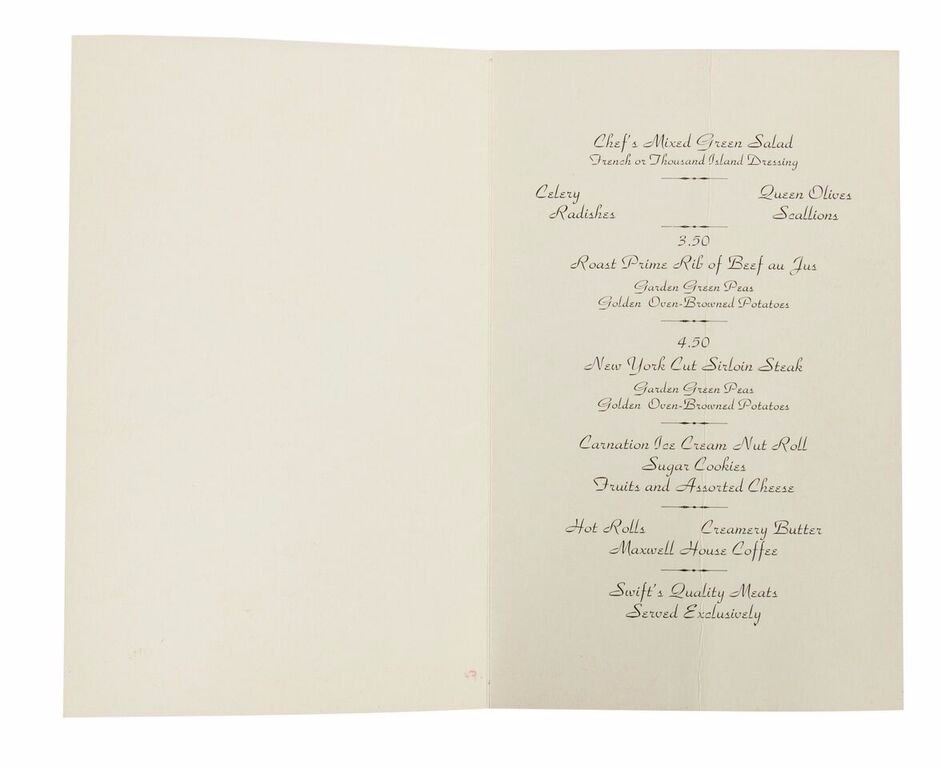 Chef's Mixed Green Salad
French or Thousand Island Dressing
Celery Queen Olives
Radishes Scallions
3.50
Roast Prime Rib of Beef au Jus
Garden Green Peas
Golden Oven-Browned Potatoes
4.50
New York Cut Sirloin Steak
Garden Green Peas
Golden Oven-Browned Potatoes
Carnation Ice Cream Nut Roll
Sugar Cookies
Fruits and Assorted Cheese
Hot Rolls Creamery Butter
Maxwell House Coffee
Swift's Quality Meats
Served Exclusively